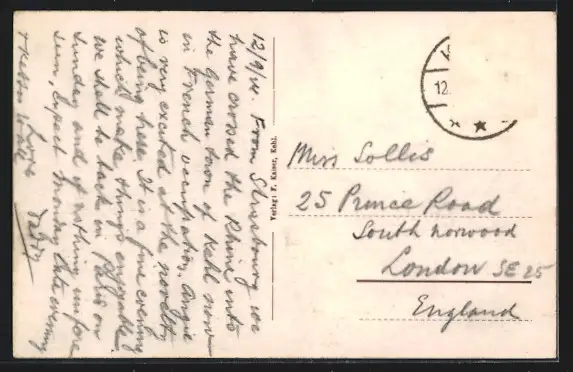 12/9/24. From Strasbourg we
have crossed the Rhine into
the German town of Kehl now
in French occupation. Angie
is very excited at the novelty
of being here. It is a fine evening
which make things enjoyable.
We shall be back in Paris on
Sunday and if nothing unfore
seen, Expect Monday late evening
Love
Daddy
Verlag: F. Kaiser, Kehl.
12.
Miss Sollis
25 Prince Road
South Norwood
London SE 25
England